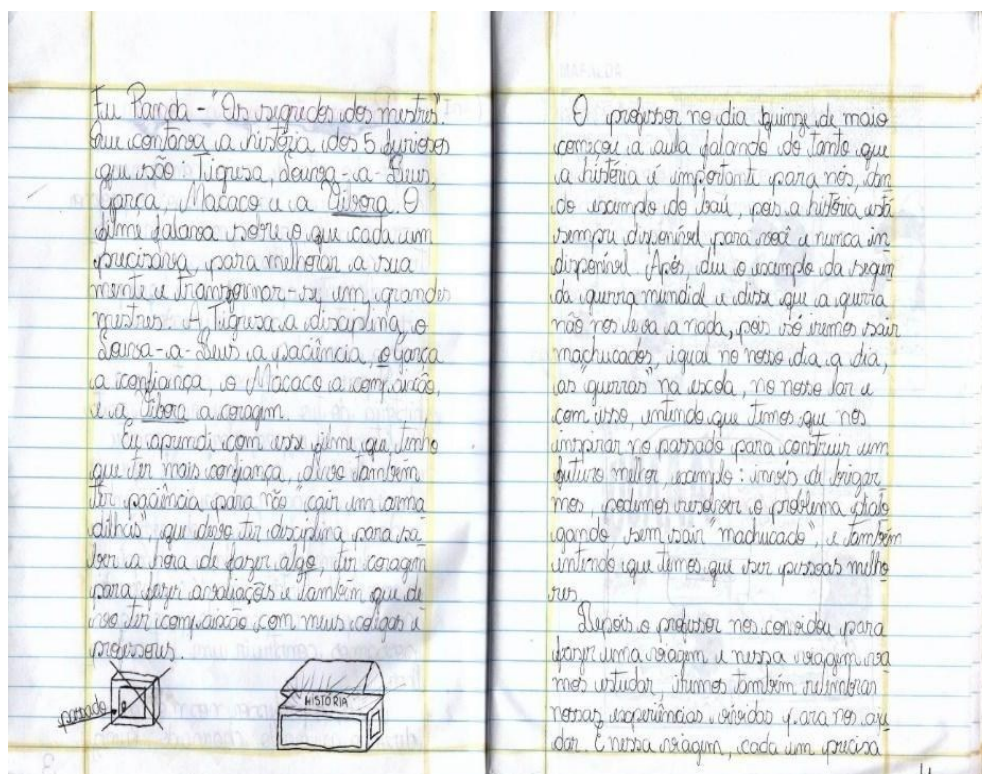 Fu Panda - "Os segredos dos mestres".
Que contava a história dos 5 furiosos
que são Tigresa, Louva-a-Deus,
Garça, Macaco e a Víbora. O
filme falava sobre o que cada um
precisaria para melhorar a sua
mente e transformar-se em grandes
mestres. A Tigresa a disciplina, o
Louva-a-Deus a paciência, o Garça
a confiança, o Macaco a compaixão,
e a Víbora a coragem.
Eu aprendi com esse filme que, tenho
que ter mais confiança, devo também
ter paciência para não "cair em arma
dilhas", que devo ter disciplina para sa
ber a hora de fazer algo, ter coragem
para fazer avaliações e também que de
vo ter compaixão com meus colegas e
professores.
passado
HISTÓRIA
O professor no dia quinze de maio
começou a aula falando do tanto que
a história é importante para nós, dan
do exemplo do baú, pois a história está
sempre disponível para você e nunca in
disponível. Após, deu o exemplo da segun
da guerra mundial e disse que a guerra
não nos leva a nada, pois só iremos sair
machucados, igual no nosso dia a dia,
as "guerras" na escola, no nosso lar e
com isso, entendo que temos que nos
inspirar no passado para construir um
futuro melhor, exemplo: invés de brigar
mos, podemos resolver o problema dialo
gando sem sair "machucado", e também
entendo que temos que ser pessoas melho
res.
Depois o professor nos convidou para
fazer uma viagem e nessa viagem va
mos estudar, iremos também relembrar
nossas experiências vividas para nos aju
dar. E nessa viagem, cada um precisa